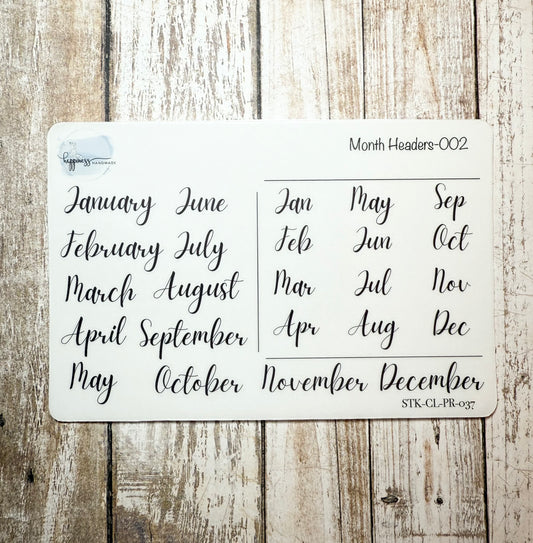 happiness
HANDMADE
Month Headers-002
January June
February July
March August
April September
May October November December
Jan May Sep
Feb Jun Oct
Mar Jul Nov
Apr Aug Dec
STK-CL-PR-037